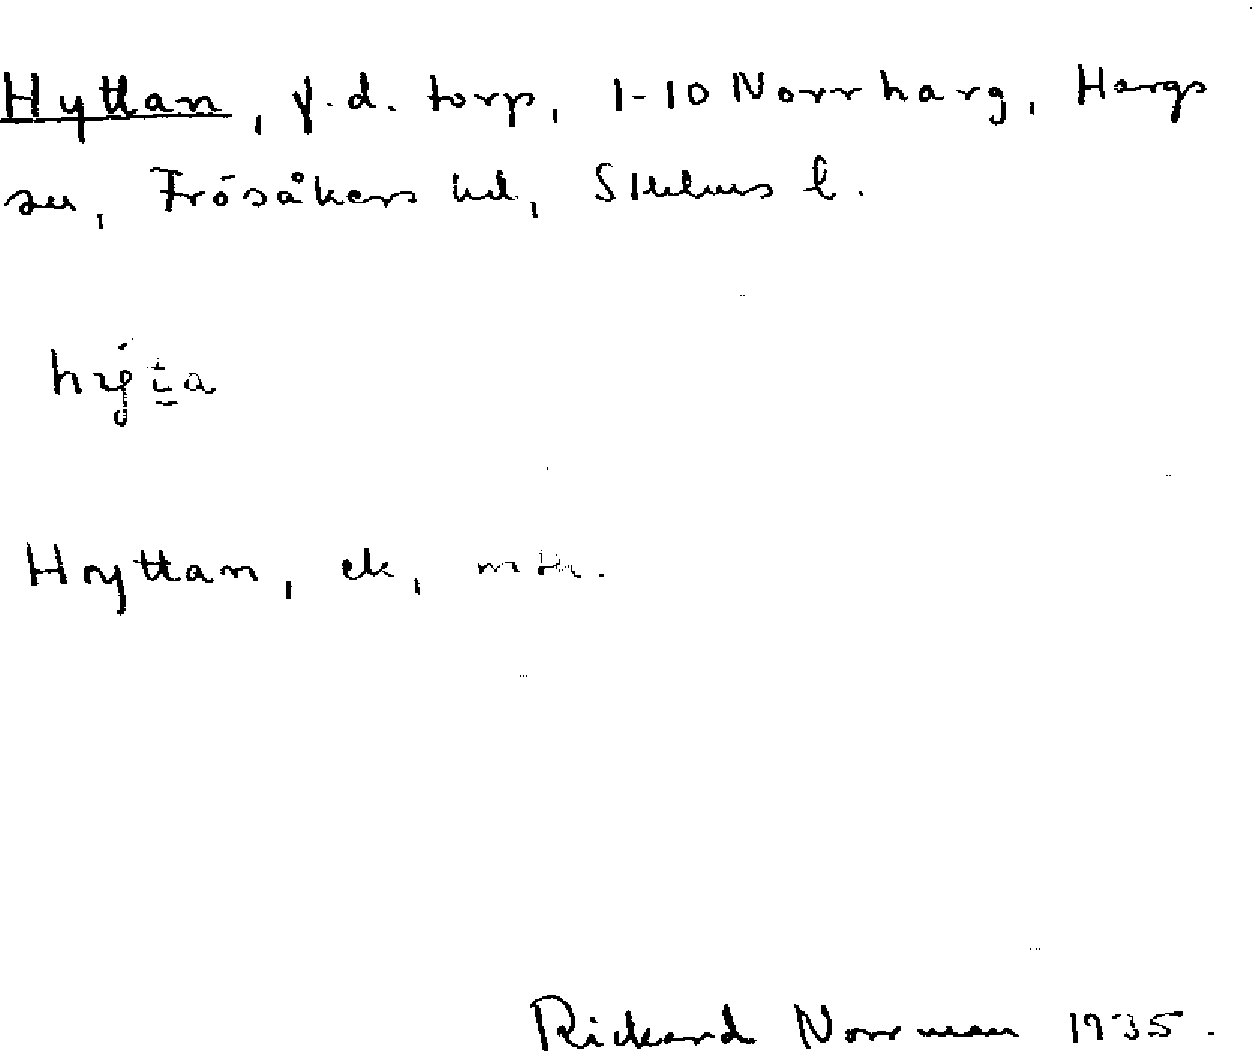 Hyttan, f.d. torp, 1-10 Norrharg, Hargs
sn, Frösåkers hd, Sthlms l.
Hyttan, ek,
Rickard Norrman 1935.